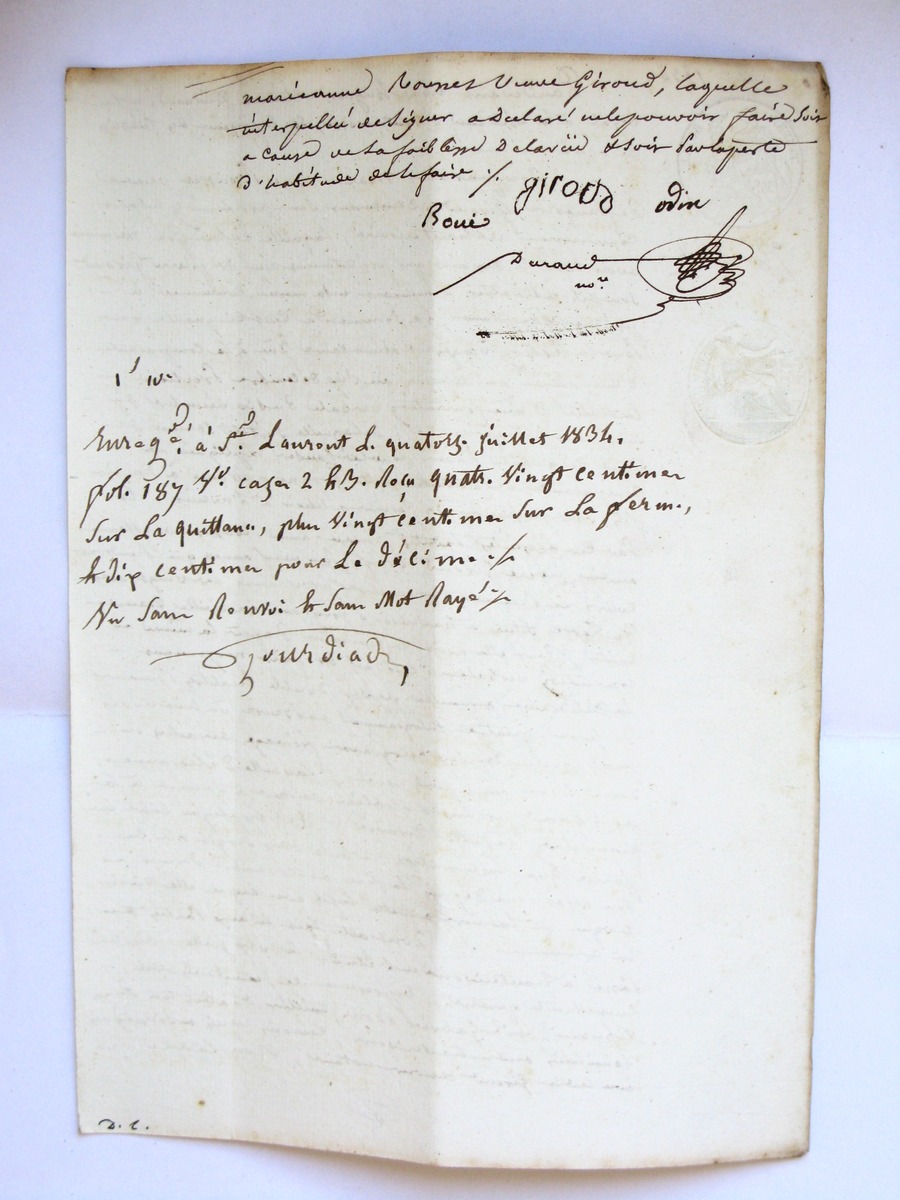 marieanne Rousset Veuve Giroud, laquelle
interpellée de signer a déclaré ne le pouvoir faire soit
a cause de la faiblesse de la vüe et soit par la perte
d'habitude de le faire ./.
Roue giroud odin
Durand
nore
1f 10c
Enregé. à St. Laurent le quatorze juillet 1834.
fol. 187 Vo. cases 2 & 3. Reçu quatre vingt centimes
sur la quittance, plus vingt centimes sur la ferme,
& dix centimes pour le décime ./.
Vu sans Renvoi & sans mot Rayé ./.
Jourdiad
D. C.